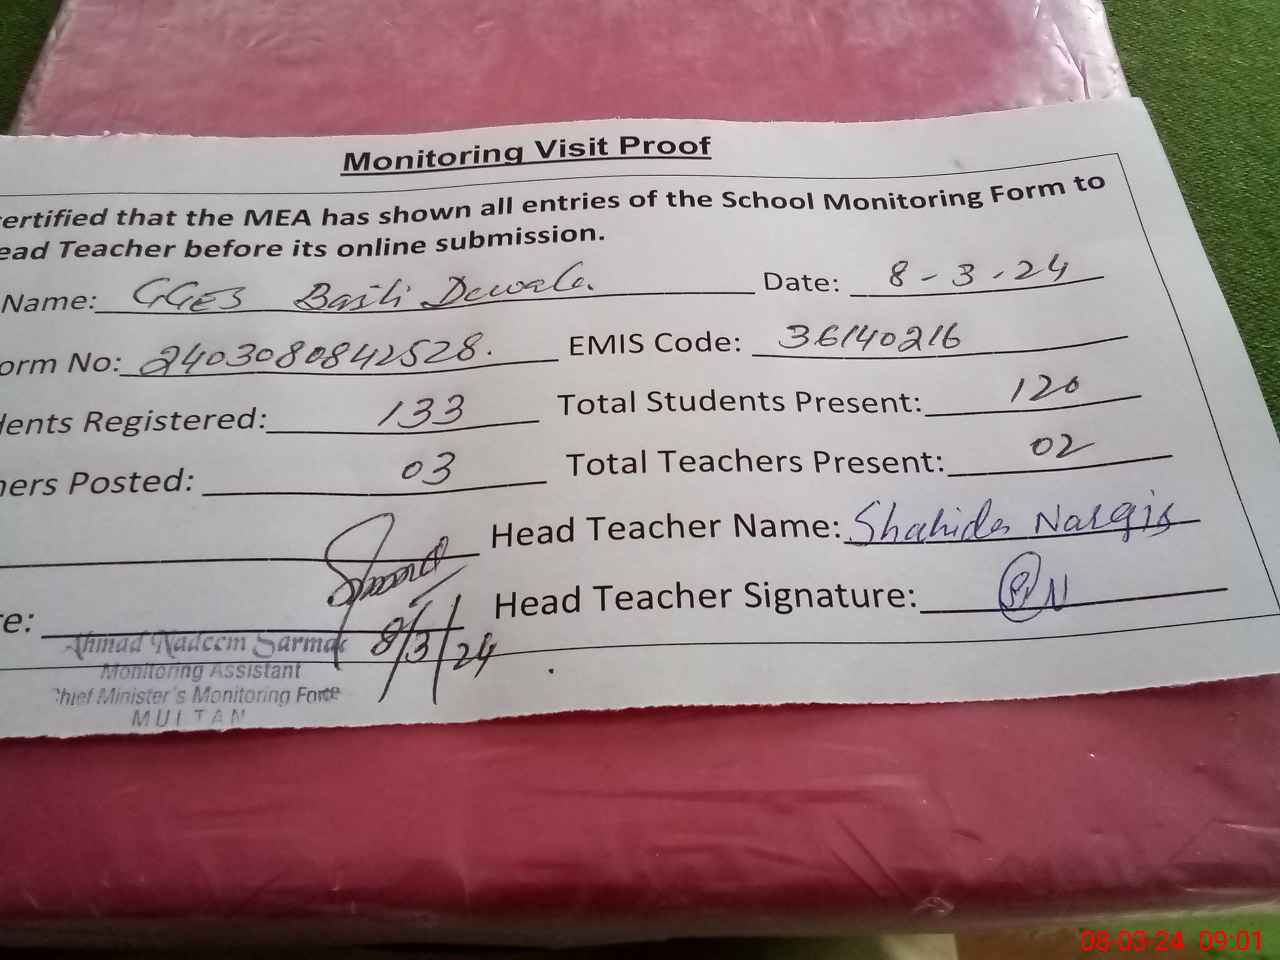 Monitoring Visit Proof
ertified that the MEA has shown all entries of the School Monitoring Form to
ead Teacher before its online submission.
Name: GGES Basti Dewala. Date: 8-3-24
orm No: 2403080842528. EMIS Code: 36140216
dents Registered: 133 Total Students Present: 120
hers Posted: 03 Total Teachers Present: 02
Head Teacher Name: Shahida Nargis
e: Head Teacher Signature: SN
8/3/24
Ahmad Nadeem Sarmad
Monitoring Assistant
Chief Minister's Monitoring Force
MULTAN
08-03-24 09:01